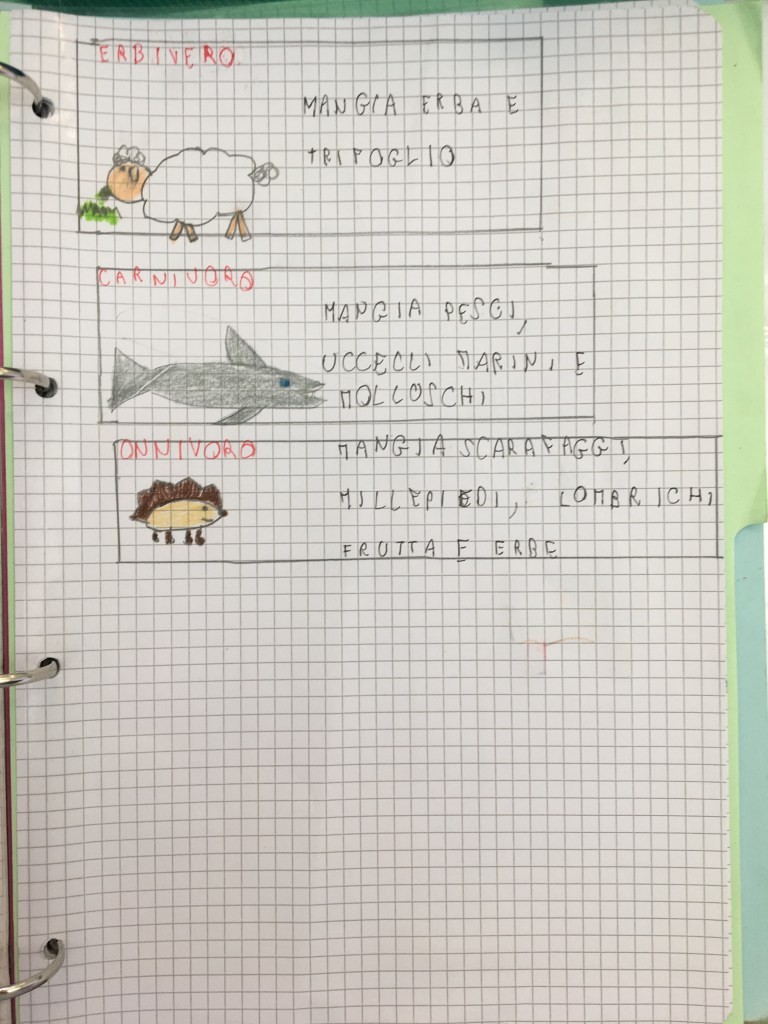 ERBIVERO
MANGIA ERBA E
TRIFOGLIO
CARNIVORO
MANGIA PESCI,
UCCECLI MARINI E
MOLLOSCHI
ONNIVORO
MANGIA SCARAFAGGI,
MILLEPIEDI, LOMBRICHI
FRUTTA E ERBE